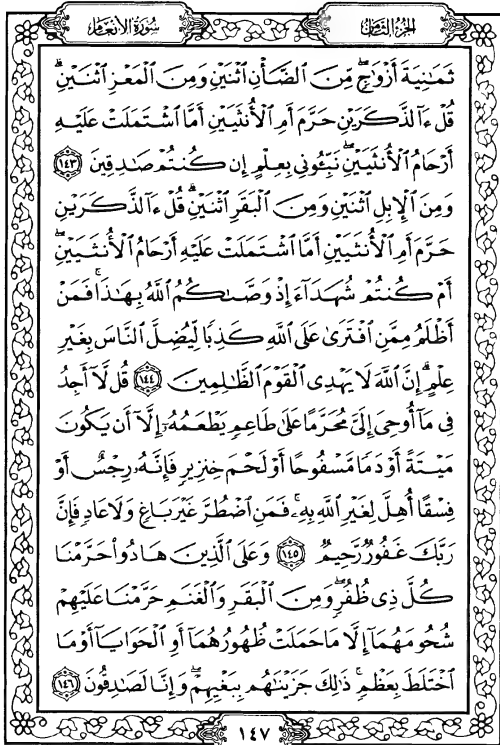 الجزء الثامن
سورة الأنعام
ثَمَٰنِيَةَ أَزْوَٰجٍ ۖ مِّنَ الضَّأْنِ اثْنَيْنِ وَمِنَ الْمَعْزِ اثْنَيْنِ ۗ
قُلْ ءَآلذَّكَرَيْنِ حَرَّمَ أَمِ الْأُنثَيَيْنِ أَمَّا اشْتَمَلَتْ عَلَيْهِ
أَرْحَامُ الْأُنثَيَيْنِ ۖ نَبِّـُٔونِى بِعِلْمٍ إِن كُنتُمْ صَٰدِقِينَ ١٤٣
وَمِنَ الْإِبِلِ اثْنَيْنِ وَمِنَ الْبَقَرِ اثْنَيْنِ ۗ قُلْ ءَآلذَّكَرَيْنِ
حَرَّمَ أَمِ الْأُنثَيَيْنِ أَمَّا اشْتَمَلَتْ عَلَيْهِ أَرْحَامُ الْأُنثَيَيْنِ ۖ
أَمْ كُنتُمْ شُهَدَآءَ إِذْ وَصَّىٰكُمُ اللَّهُ بِهَٰذَا ۚ فَمَنْ
أَظْلَمُ مِمَّنِ افْتَرَىٰ عَلَى اللَّهِ كَذِبًا لِّيُضِلَّ النَّاسَ بِغَيْرِ
عِلْمٍ ۗ إِنَّ اللَّهَ لَا يَهْدِى الْقَوْمَ الظَّٰلِمِينَ ١٤٤ قُل لَّآ أَجِدُ
فِى مَآ أُوحِىَ إِلَىَّ مُحَرَّمًا عَلَىٰ طَاعِمٍ يَطْعَمُهُۥٓ إِلَّآ أَن يَكُونَ
مَيْتَةً أَوْ دَمًا مَّسْفُوحًا أَوْ لَحْمَ خِنزِيرٍ فَإِنَّهُۥ رِجْسٌ أَوْ
فِسْقًا أُهِلَّ لِغَيْرِ اللَّهِ بِهِۦ ۚ فَمَنِ اضْطُرَّ غَيْرَ بَاغٍ وَلَا عَادٍ فَإِنَّ
رَبَّكَ غَفُورٌ رَّحِيمٌ ١٤٥ وَعَلَى الَّذِينَ هَادُوا حَرَّمْنَا
كُلَّ ذِى ظُفُرٍ ۖ وَمِنَ الْبَقَرِ وَالْغَنَمِ حَرَّمْنَا عَلَيْهِمْ
شُحُومَهُمَآ إِلَّا مَا حَمَلَتْ ظُهُورُهُمَآ أَوِ الْحَوَايَآ أَوْ مَا
اخْتَلَطَ بِعَظْمٍ ۚ ذَٰلِكَ جَزَيْنَٰهُم بِبَغْيِهِمْ ۖ وَإِنَّا لَصَٰدِقُونَ ١٤٦
١٤٧